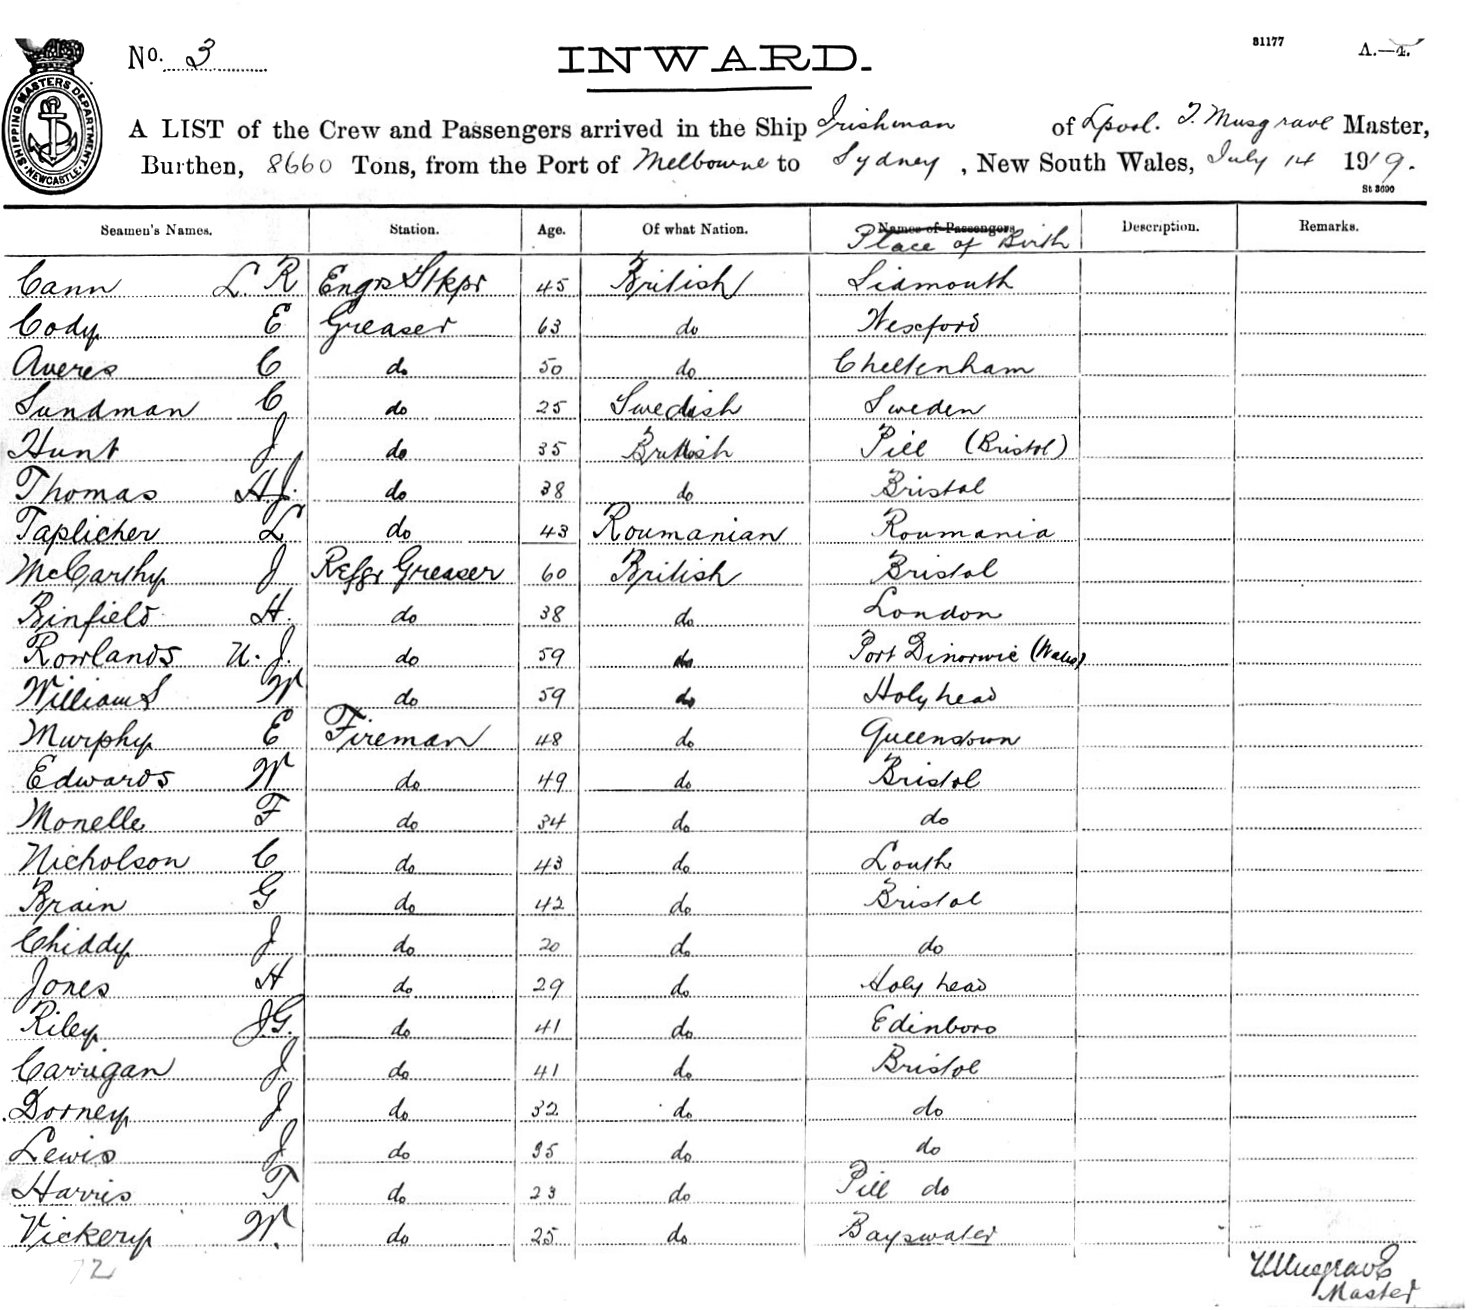 No. 3
INWARD.
81177
A.—4.
SHIPPING MASTERS DEPARTMENT
NEWCASTLE
A LIST of the Crew and Passengers arrived in the Ship Irishman of Lpool. T. Musgrave Master,
Burthen, 8660 Tons, from the Port of Melbourne to Sydney, New South Wales, July 14 1919.
St 3690
Seamen's Names. Station. Age. Of what Nation. Names of Passengers Description. Remarks.
Place of Birth
Cann L. R Engrs Stkpr 45 British Sidmouth
Cody E Greaser 63 do Wexford
Averes C do 50 do Cheltenham
Sundman C do 25 Swedish Sweden
Hunt J do 35 British Pill (Bristol)
Thomas H.J. do 38 do Bristol
Taplicher L do 43 Roumanian Roumania
McCarthy J Refgr Greaser 60 British Bristol
Binfield H. do 38 do London
Rowlands U. J. do 59 do Port Dinorwic (Wales)
Williams W do 59 do Holyhead
Murphy E Fireman 48 do Queenstown
Edwards W do 49 do Bristol
Monelle F do 34 do do
Nicholson C do 43 do Louth
Brain G do 42 do Bristol
Chiddy J do 20 do do
Jones H do 29 do Holyhead
Riley J.G. do 41 do Edinboro
Carrigan J do 41 do Bristol
Dorney J do 32 do do
Lewis J do 35 do do
Harris T do 23 do Pill do
Vickery W. do 25 do Bayswater
72
T Musgrave
Master